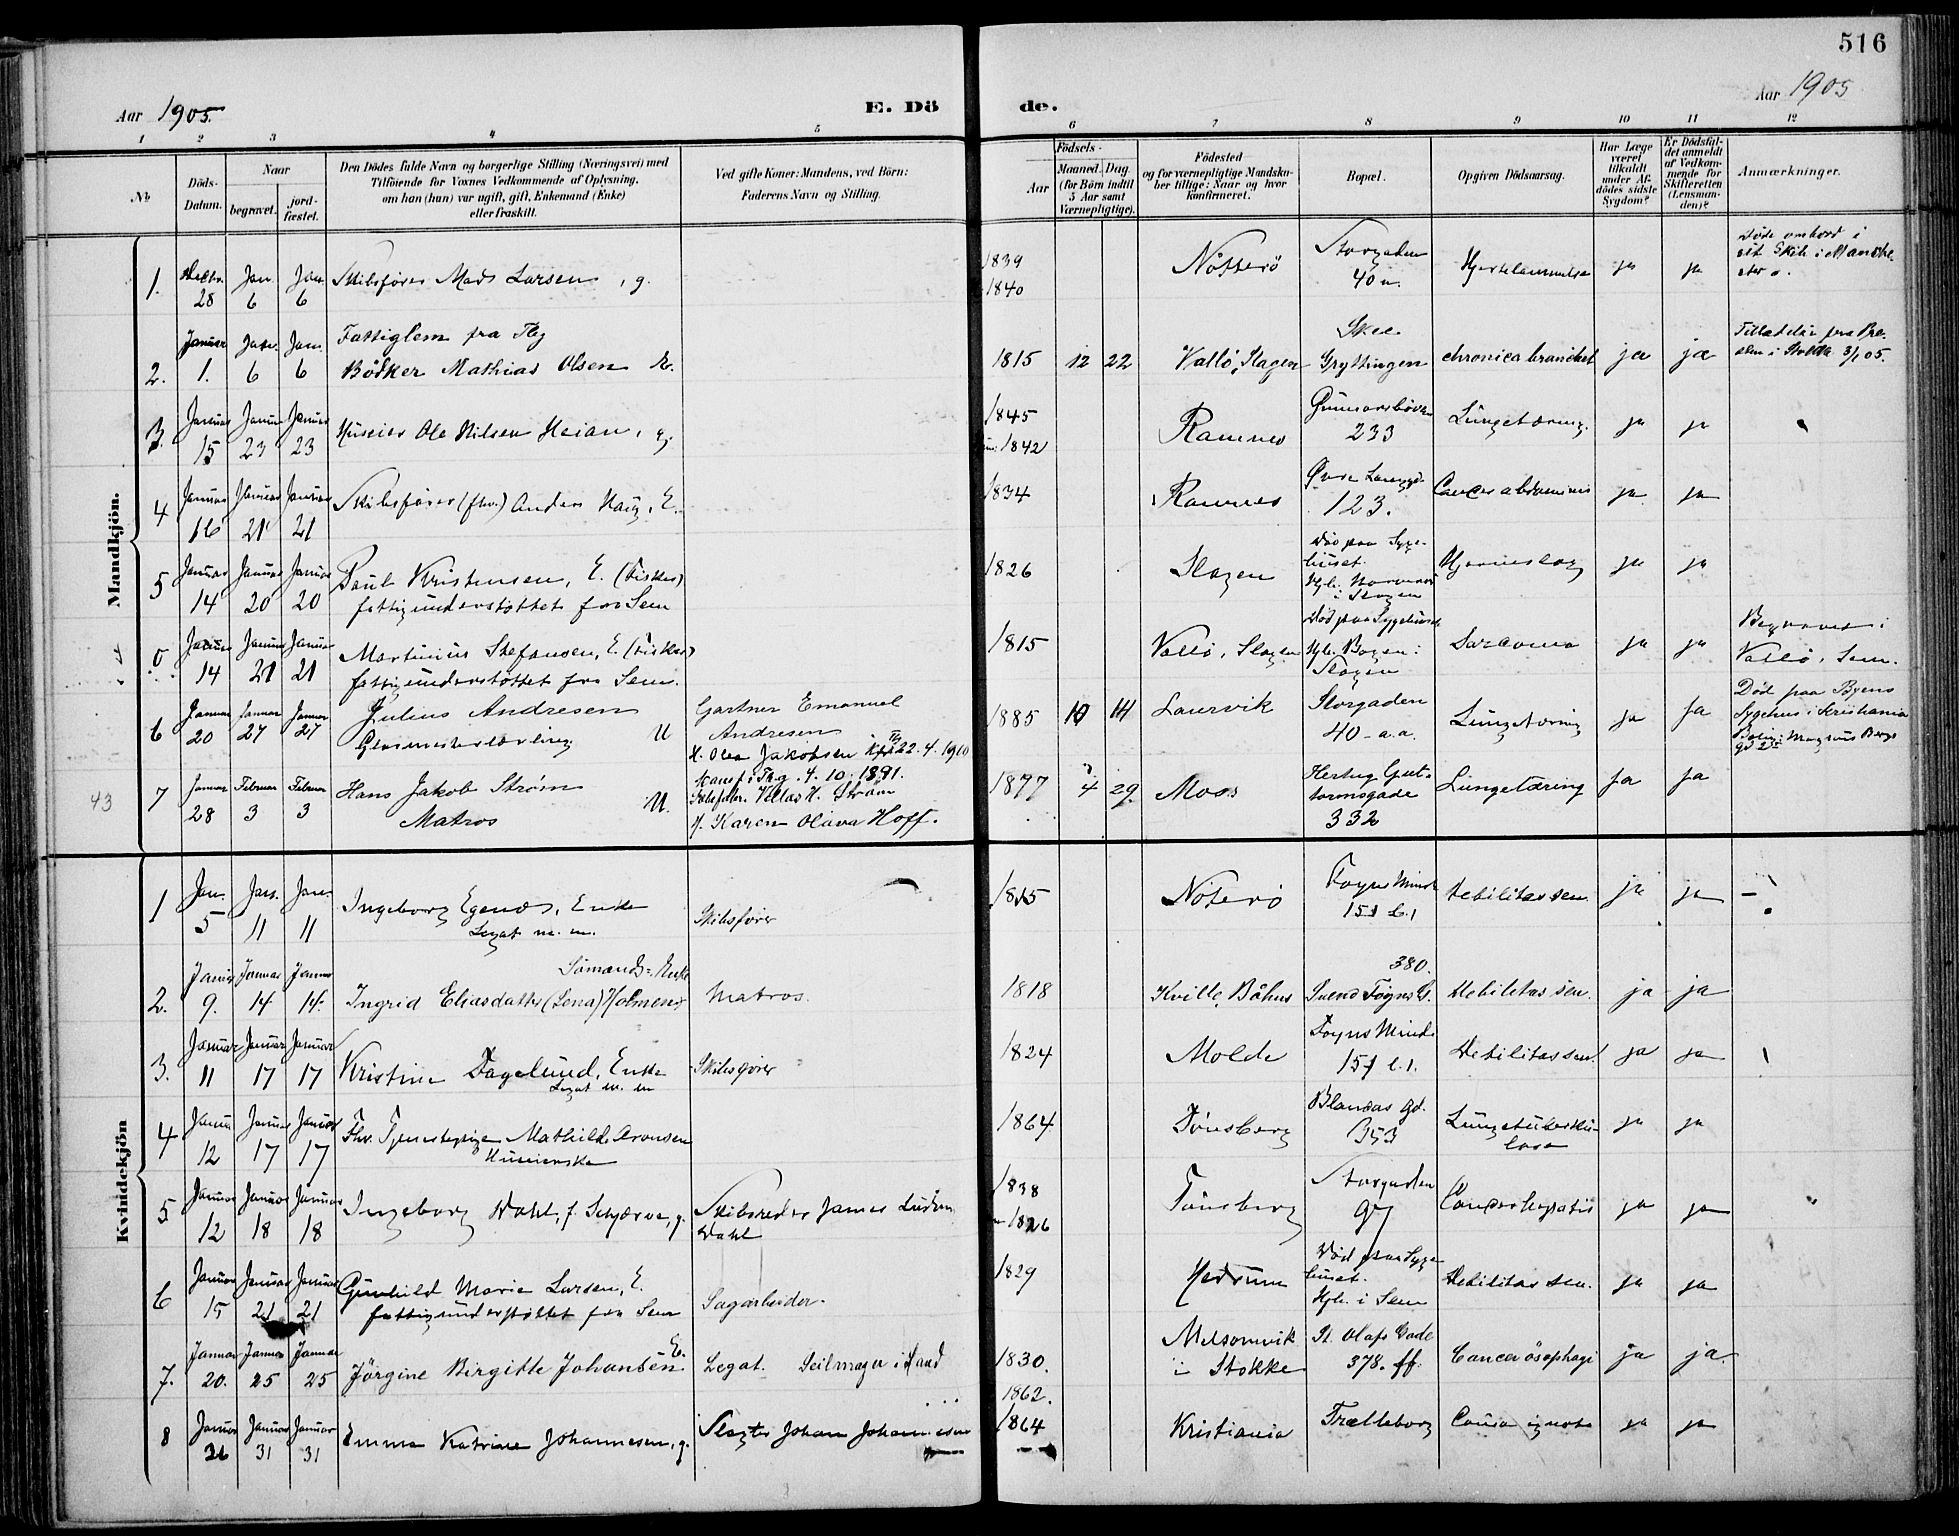 516
Aar 1905.
E. Dö
de.
Aar 1905
1 2 3 4 5 6 7 8 9 10 11 12
№
Döds-
Datum.
Naar
begravet.
jord-
fæstet.
Den Dödes fulde Navn og borgerlige Stilling (Næringsvei) med
Tilföiende for Voxnes Vedkommende af Oplysning,
om han (hun) var ugift, gift, Enkemand (Enke)
eller fraskilt.
Ved gifte Koner: Mandens, ved Börn:
Faderens Navn og Stilling.
Födsels-
Aar
Maaned.
Dag.
(for Börn indtil
5 Aar samt
Værnepligtige).
Födested
og for værnepligtige Mandska-
ber tillige: Naar og hvor
konfirmeret.
Bopæl.
Opgiven Dödsaarsag.
Har Læge
været
tilkaldt
under Af-
dødes sidste
Sygdom?
Er Dödsfal-
det anmeldt
af Vedkom-
mende for
Skifteretten
(Lensman-
den)?
Anmærkninger.
Mandkjön.
1. 28 Jan 6 Jan 6 Skibsfører Mads Larsen, g. 1839 1840 Nøtterø Storgaden 40 u. Hjertelammelse ja ja
Døde ombord i
sit Skib i Manche-
ster.
2. Januar 1. Jan. 6 Jan 6 Fattiglem fra Tbg
Bødker Mathias Olsen E. 1815 12 22 Vallø, Slagen Gryttingen chronica bronchit ja ja
3. Januar 15 Januar 23 Januar 23 Huseier Ole Nilsen Heian, g. 1845 1842 Ramnes 233 Lungetæring ja ja
4 Januar 16 Januar 21 Januar 21 Skibsfører (fhv.) Anders Haug, E. 1834 Ramnes 123. Cancer abdominis ja ja
5 Januar 14 Januar 20 Januar 20 Paul Kristensen, E. (Fisker)
fattigunderstøttet fra Sem 1826 Slagen Død paa Syge-
huset. i Slagen Hjerneslag ja ja
Januar 14 Januar 21 Januar 21 Martinius Stefansen, E. (Fisker)
fattigunderstøttet fra Sem. 1815 Vallø, Slagen Død paa Sygehuset
Hjb. Bogen i
Slagen Sarcoma ja ja Begravet i
Vallø, Sem.
6 Januar 20 Januar 27 Januar 27 Julius Andresen
Glasmesterlærling U Gartner Emanuel
Andresen 1885 10 14 Laurvik Storgaden
40-a.a. Lungetæring ja ja Død paa Byens
Sygehus i Kristiania
H. Olea Jakobsen 22.4.1910
Tbg. 4.10.1891.
43 7 Januar 28 Februar 3 Februar 3 Hans Jakob Strøm
Matros U. H. Strøm
M. Karen Olava Hoff. 1877 4 29 Moss Hertug Gut-
tormsgade
332 Lungetæring ja ja
Kvindekjön
1 Jan. 5 Jan. 11 Jan. 11 Ingeborg Egenæs, Enke
Legat m. m. Skibsfører 1815 Nøterø Foyns Minde
151 b.1 Debilitas sen. ja ja
2. Januar 9. Januar 14 Januar 14. Sømands-Enke
Ingrid Eliasdatter (Lena) Holmen Matros. 1818 Kville, Båhus 380.
Svend Foyns G. Debilitas sen. ja ja
3. Januar 11 Januar 17 Januar 17 Kristine Fagelund, Enke
Legat m. m Skibsfører 1824 Molde Foyns Minde
151 b.1. Debilitas sen. ja ja
4 Januar 12 Januar 17 Januar 17 Fhv. Tjenestepige Mathilde Aronsen
Huseierske 1864 Tønsberg 353 Lungetuberku-
lose ja ja
5 Januar 12 Januar 18 Januar 18 Ingeborg Dahl, f. Schjærve, g. Skibsreder James
Dahl 1838 1826 Tønsberg Storgaden
97 Cancer hepatis ja ja
6 Januar 15 Januar 21 Januar 21 Gunhild Marie Larsen, E.
fattigunderstøttet fra Sem Sagarbeider. 1829 Hedrum Død paa Syge-
huset.
Hjb. i Sem Debilitas sen. ja ja
7. Januar 20. Januar 25 Januar 25 Jörgine Birgitte Johansen E. Legat. Seilmager i Land 1830. Melsomvik
i Stokke St. Olafs Gade
378. ff. Cancer ösophagi ja ja.
8 Januar 26 Januar 31 Januar 31 Emma Katrine Johannesen, g. Slagter Johan Johannesen 1862. 1864 Kristiania Trælleborg Causa ignota ja ja